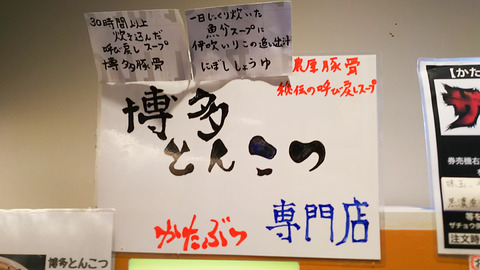 30時間以上
炊き込んだ
呼び戻しスープ
博多豚骨
一日じっくり炊いた
魚介スープに
伊吹いりこの追い出汁
にぼししょうゆ
濃厚豚骨
秘伝の呼び戻しスープ
博多
とんこつ
かたぶつ
専門店
博多とんこつ
【かた
ザ
券売機右
等を
ザチョウタ
注文時